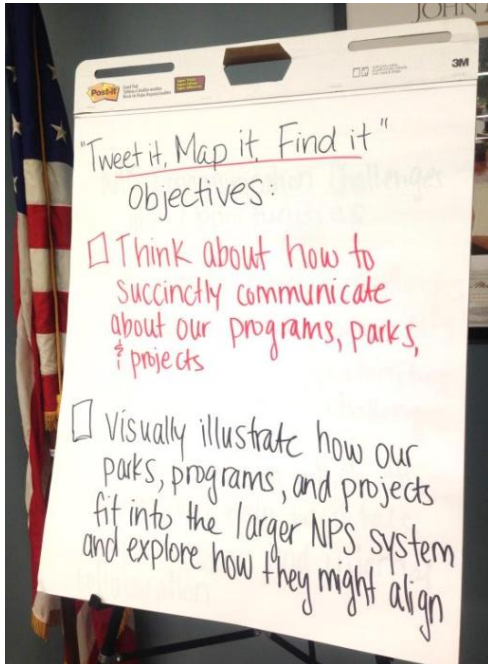 JOHN
Post-it
3M
"Tweet it, Map it, Find it"
Objectives:
Think about how to
succinctly communicate
about our programs, parks,
& projects
Visually illustrate how our
parks, programs, and projects
fit into the larger NPS system
and explore how they might align